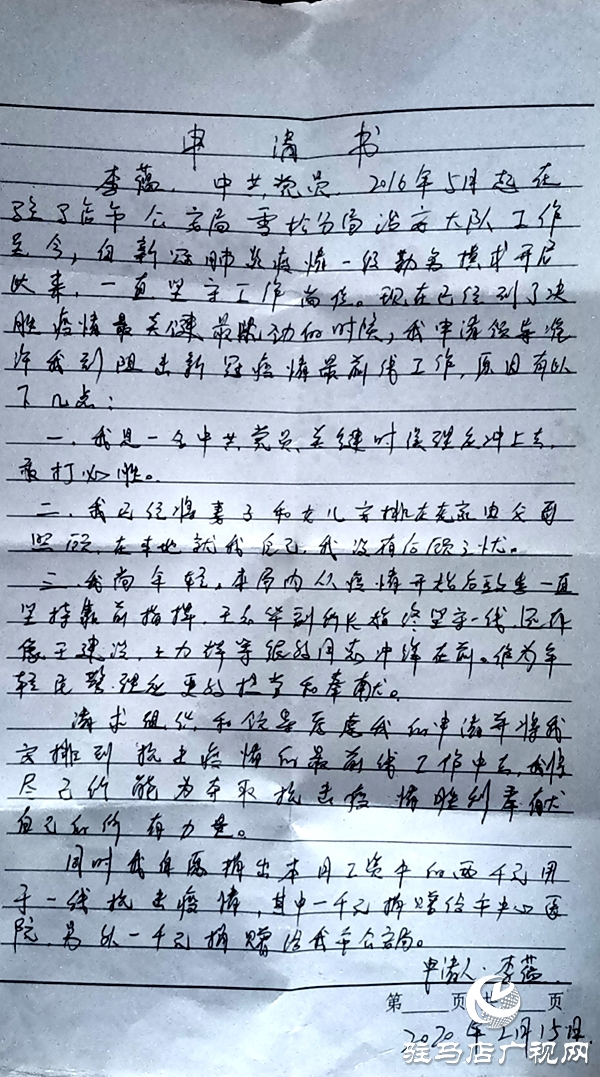 申请书
李蕴，中共党员，2016年5月起在
驻马店市公安局雪松分局治安大队工作
至今，自新冠肺炎疫情一级勤务模式开启
以来，一直坚守工作岗位。现在已经到了决
胜疫情最关键最吃劲的时候，我申请领导准
许我到阻击新冠疫情最前线工作，原因有以
下几点：
一、我是一名中共党员，关键时候理应冲上去，
敢打必胜。
二、我已经将妻子和女儿安排在老家由父母
照顾，在本地就我自己，我没有后顾之忧。
三、我尚年轻，本局内从疫情开始后政委一直
坚持靠前指挥，王
华副所长始终坚守一线，还有
像王建设、王力辉等很多同志冲锋在前。作为年
轻民警理应更多担当和奉献。
请求组织和领导考虑我的申请并将我
安排到抗击疫情的最前线工作中去，我将
尽己所能为夺取抗击疫情胜利奉献
自己的所有力量。
同时我自愿捐出本月工资中的两千元用
于一线抗击疫情，其中一千元捐赠给市中心医
院，另外一千元捐赠给我市公安局。
申请人：李蕴
第 页 共 页
2020年2月15日.
驻马店广视网